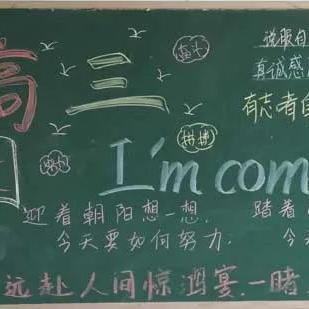 高三
说服自
真诚感
有志者自
拼搏
I'm com
迎着朝阳想一想, 踏着
今天要如何努力. 今
远赴人间惊鸿宴,一睹